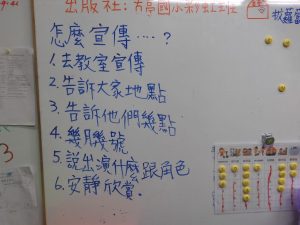 出版社:
怎麼宣傳‥‥?
1.去教室宣傳
2.告訴大家地點
3.告訴他們幾點
4.幾月幾號
5.說出演什麼跟角色
6.安靜欣賞。
3